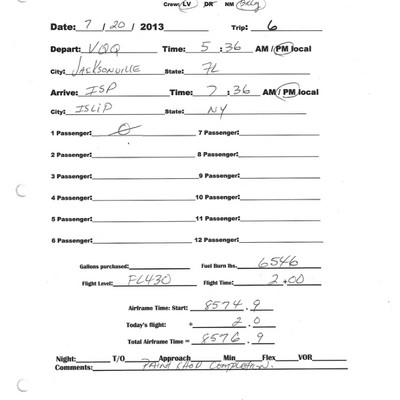 Crew: LV DR NM
Date: 7 / 20 / 2013 Trip: 6
Depart: VQQ Time: 5 : 36 AM / PM local
City: JACKSONVILLE State: FL
Arrive: ISP Time: 7 : 36 AM / PM local
City: ISLIP State: NY
1 Passenger: 0 7 Passenger:
2 Passenger: 8 Passenger:
3 Passenger: 9 Passenger:
4 Passenger: 10 Passenger:
5 Passenger: 11 Passenger:
6 Passenger: 12 Passenger:
Gallons purchased: Fuel Burn lbs. 6546
Flight Level: FL430 Flight Time: 2 + 00
Airframe Time: Start: 8574 . 9
Today's flight: + 2 . 0
Total Airframe Time = 8576 . 9
Night: T/O Approach Min Flex VOR
Comments: PAINT COMPLETION.